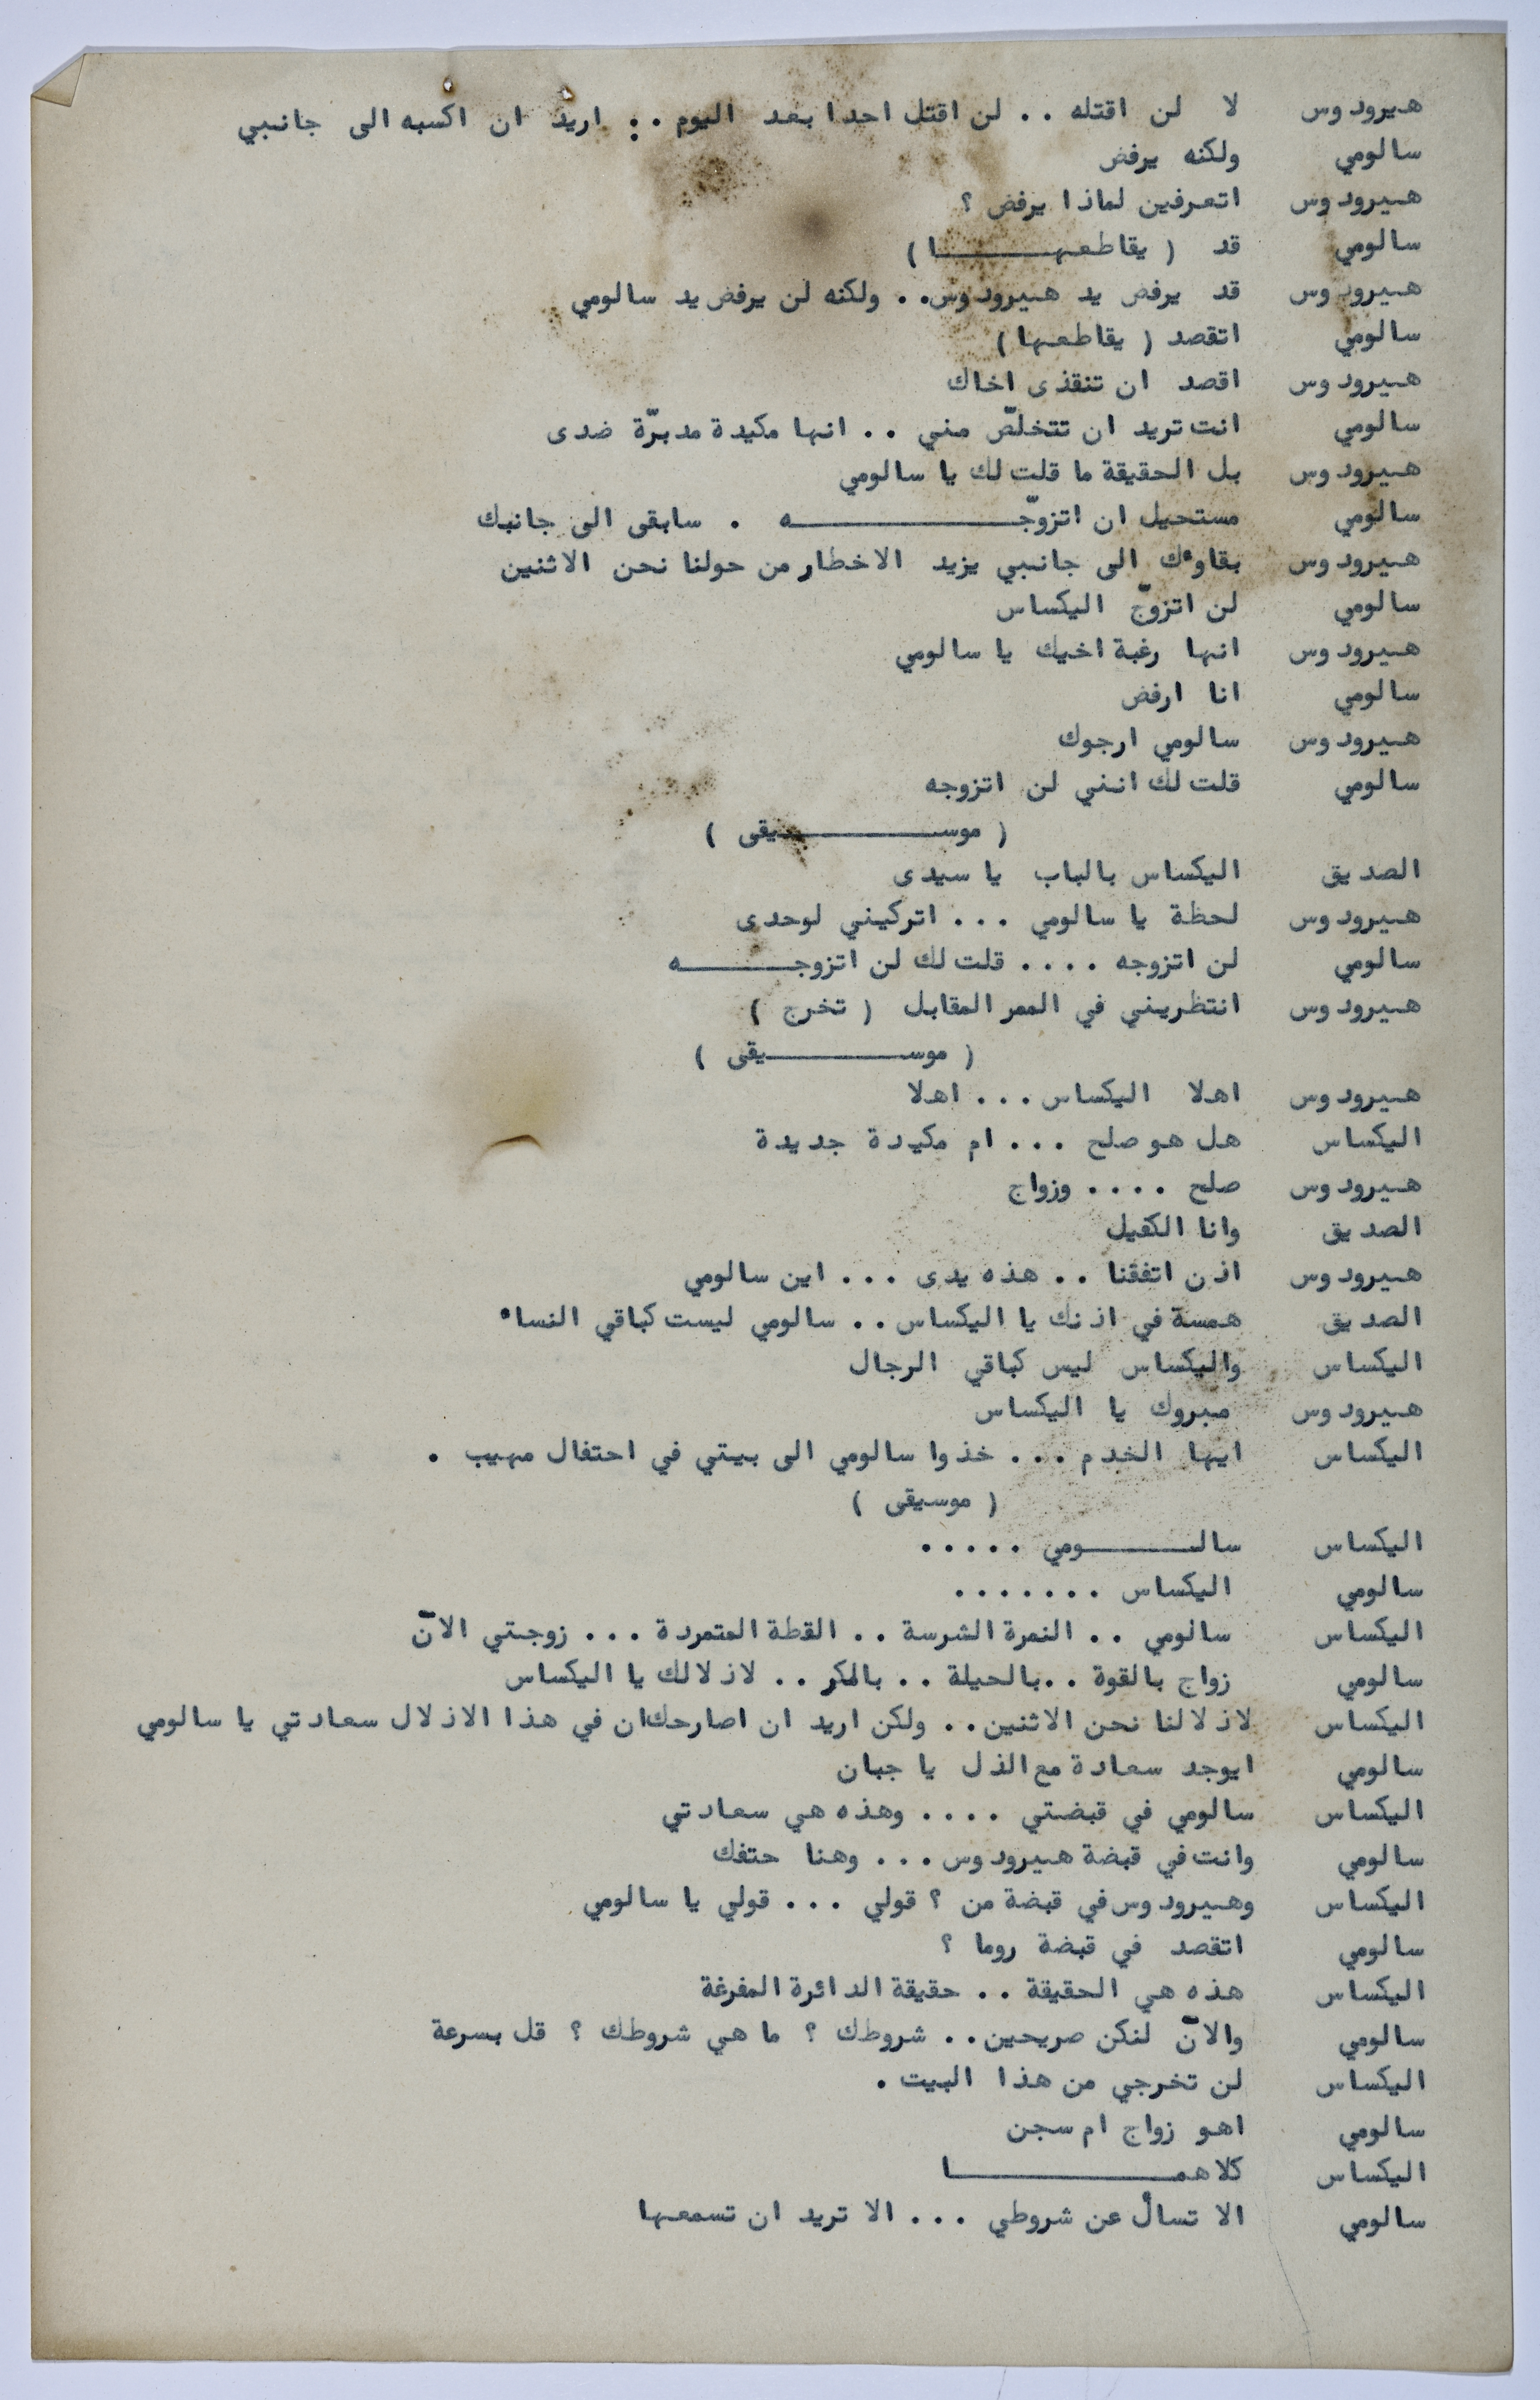 هيرودوس لا لن اقتله .. لن اقتل احدا بعد اليوم .. اريد ان اكسبه الى جانبي
سالومي ولكنه يرفض
هيرودوس اتعرفين لماذا يرفض ؟
سالومي قد ( يقاطعهـــــــا )
هيرودوس قد يرفض يد هيرودوس.. ولكنه لن يرفض يد سالومي
سالومي اتقصد ( يقاطعها )
هيرودوس اقصد ان تنقذى اخاك
سالومي انت تريد ان تتخلصّ مني .. انها مكيدة مدبرّة ضدى
هيرودوس بل الحقيقة ما قلت لك يا سالومي
سالومي مستحيل ان اتزوّجــــــــــــــه . سابقى الى جانبك
هيرودوس بقاوءك الى جانبي يزيد الاخطار من حولنا نحن الاثنين
سالومي لن اتزوّج اليكساس
هيرودوس انها رغبة اخيك يا سالومي
سالومي انا ارفض
هيرودوس سالومي ارجوك
سالومي قلت لك انني لن اتزوجه
( موســـــــــــيقى )
الصديق اليكساس بالباب يا سيدى
هيرودوس لحظة يا سالومي ... اتركيني لوحدى
سالومي لن اتزوجه .... قلت لك لن اتزوجـــــــه
هيرودوس انتظريني في الممر المقابل ( تخرج )
( موســـــــــيقى )
هيرودوس اهلا اليكساس ... اهلا
اليكساس هل هو صلح ... ام مكيدة جديدة
هيرودوس صلح .... وزواج
الصديق وانا الكفيل
هيرودوس اذن اتفقنا .. هذه يدى ... اين سالومي
الصديق همسة في اذنك يا اليكساس .. سالومي ليست كباقي النساء
اليكساس واليكساس ليس كباقي الرجال
هيرودوس مبروك يا اليكساس
اليكساس ايها الخدم ... خذوا سالومي الى بيتي في احتفال مهيب .
( موسيقى )
اليكساس سالـــــــومي .....
سالومي اليكساس .......
اليكساس سالومي .. النمرة الشرسة .. القطة المتمردة ... زوجتي الانّ
سالومي زواج بالقوة ..بالحيلة .. بالمكر .. لاذلالك يا اليكساس
اليكساس لاذلالنا نحن الاثنين .. ولكن اريد ان اصارحك ان في هذا الاذلال سعادتي يا سالومي
سالومي ايوجد سعادة مع الذل يا جبان
اليكساس سالومي في قبضتي .... وهذه هي سعادتي
سالومي وانت في قبضة هيرودوس ... وهنا حتفك
اليكساس وهيرودوس في قبضة من ؟ قولي ... قولي يا سالومي
سالومي اتقصد في قبضة روما ؟
اليكساس هذه هي الحقيقة .. حقيقة الدائرة المفرغة
سالومي والانّ لنكن صريحين .. شروطك ؟ ما هي شروطك ؟ قل بسرعة
اليكساس لن تخرجي من هذا البيت .
سالومي اهو زواج ام سجن
اليكساس كلاهمـــــــــــــا
سالومي الا تسأل عن شروطي ... الا تريد ان تسمعها